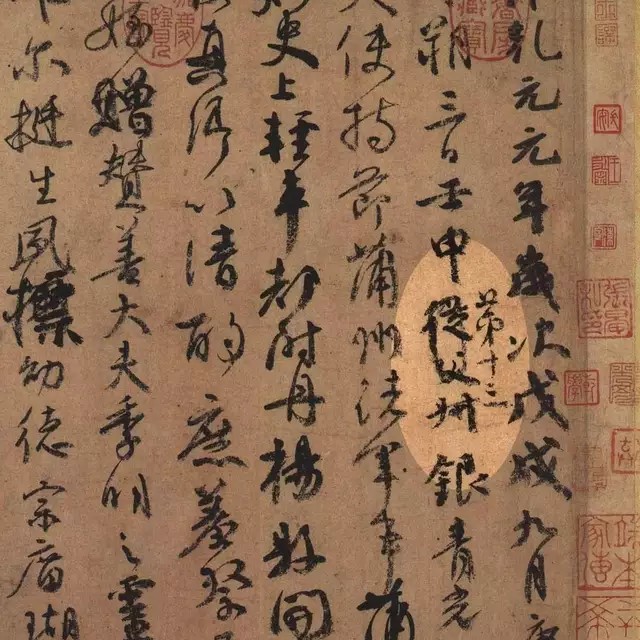 乾元元年歲次戊戌九月庚
朔三日壬申從父叔銀青光
第十三
夫使持節蒲州諸軍事蒲
刺史上輕車都尉丹楊縣開
真卿以清酌庶羞祭
姪贈贊善大夫季明之靈
爾挺生夙標幼德宗廟瑚